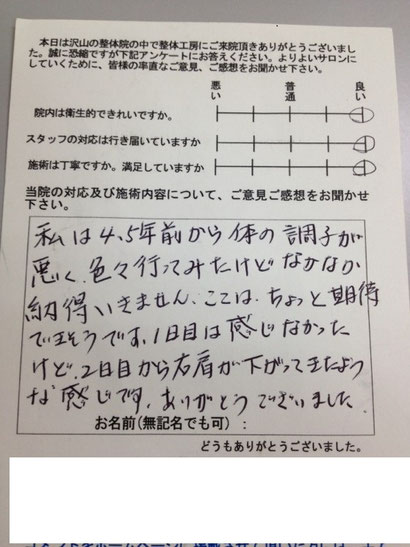 本日は沢山の整体院の中で整体工房にご来院頂きありがとうございまし
た。誠に恐縮ですが下記アンケートにお答えください。よりよいサロンに
していくために、皆様の率直なご意見、ご感想をお聞かせ下さい。
悪い 普通 良い
院内は衛生的できれいですか。
スタッフの対応は行き届いていますか
施術は丁寧ですか。満足していますか
当院の対応及び施術内容について、ご意見ご感想をお聞かせ
下さい。
私は4、5年前から体の調子が
悪く、色々行ってみたけどなかなか
納得いきません、ここは、ちょっと期待
できそうです、1日目は感じなかった
けど、2日目から右肩が下がってきたよう
な感じです、ありがとうございました。
お名前(無記名でも可) :
どうもありがとうございました。